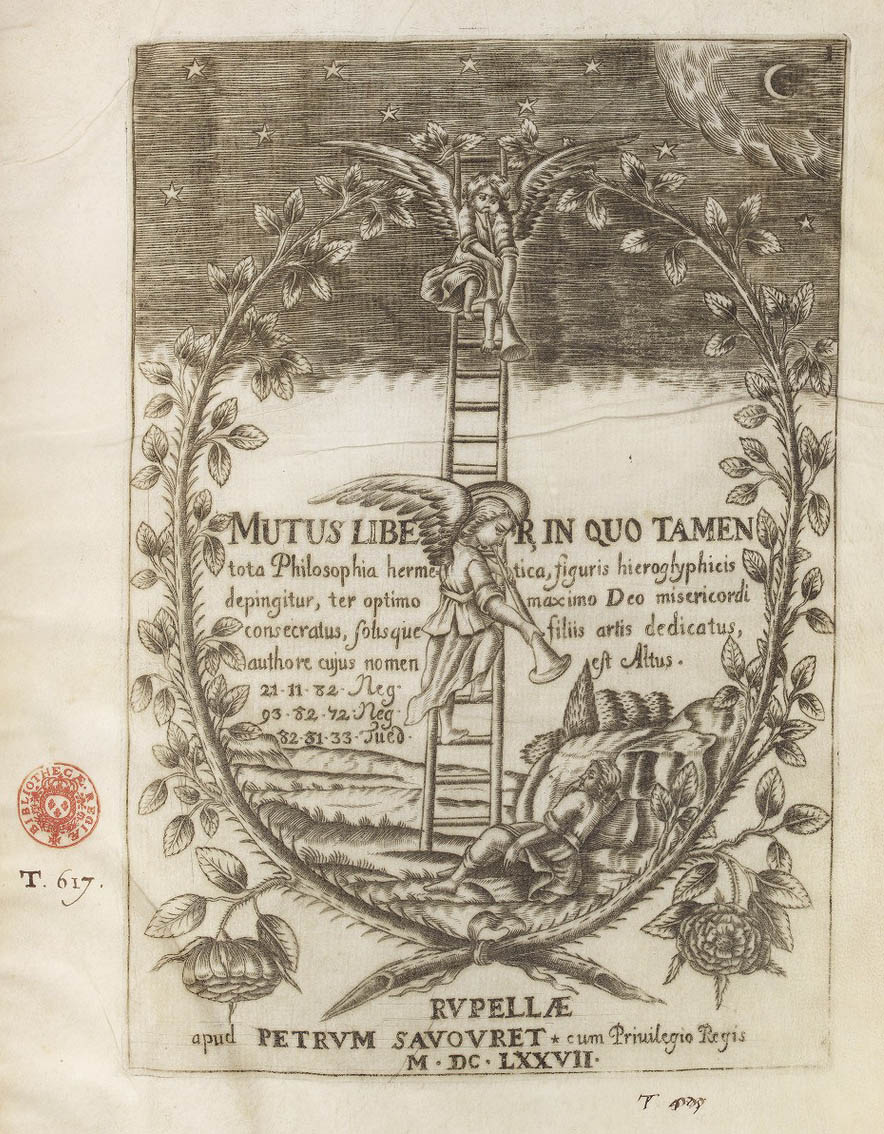 1
MUTUS LIBER IN QUO TAMEN
tota Philosophia hermetica, figuris hieroglyphicis
depingitur, ter optimo maximo Deo misericordi
consecratus, solisque filiis artis dedicatus,
authore cujus nomen est Altus.
21·11·82·Neg·
93·82·72·Neg·
82·81·33·Tued·
BIBLIOTHECÆ REGIÆ
T. 617.
RVPELLÆ
apud PETRVM SAVOVRET ★ cum Privilegio Regis
M·DC·LXXVII·
T